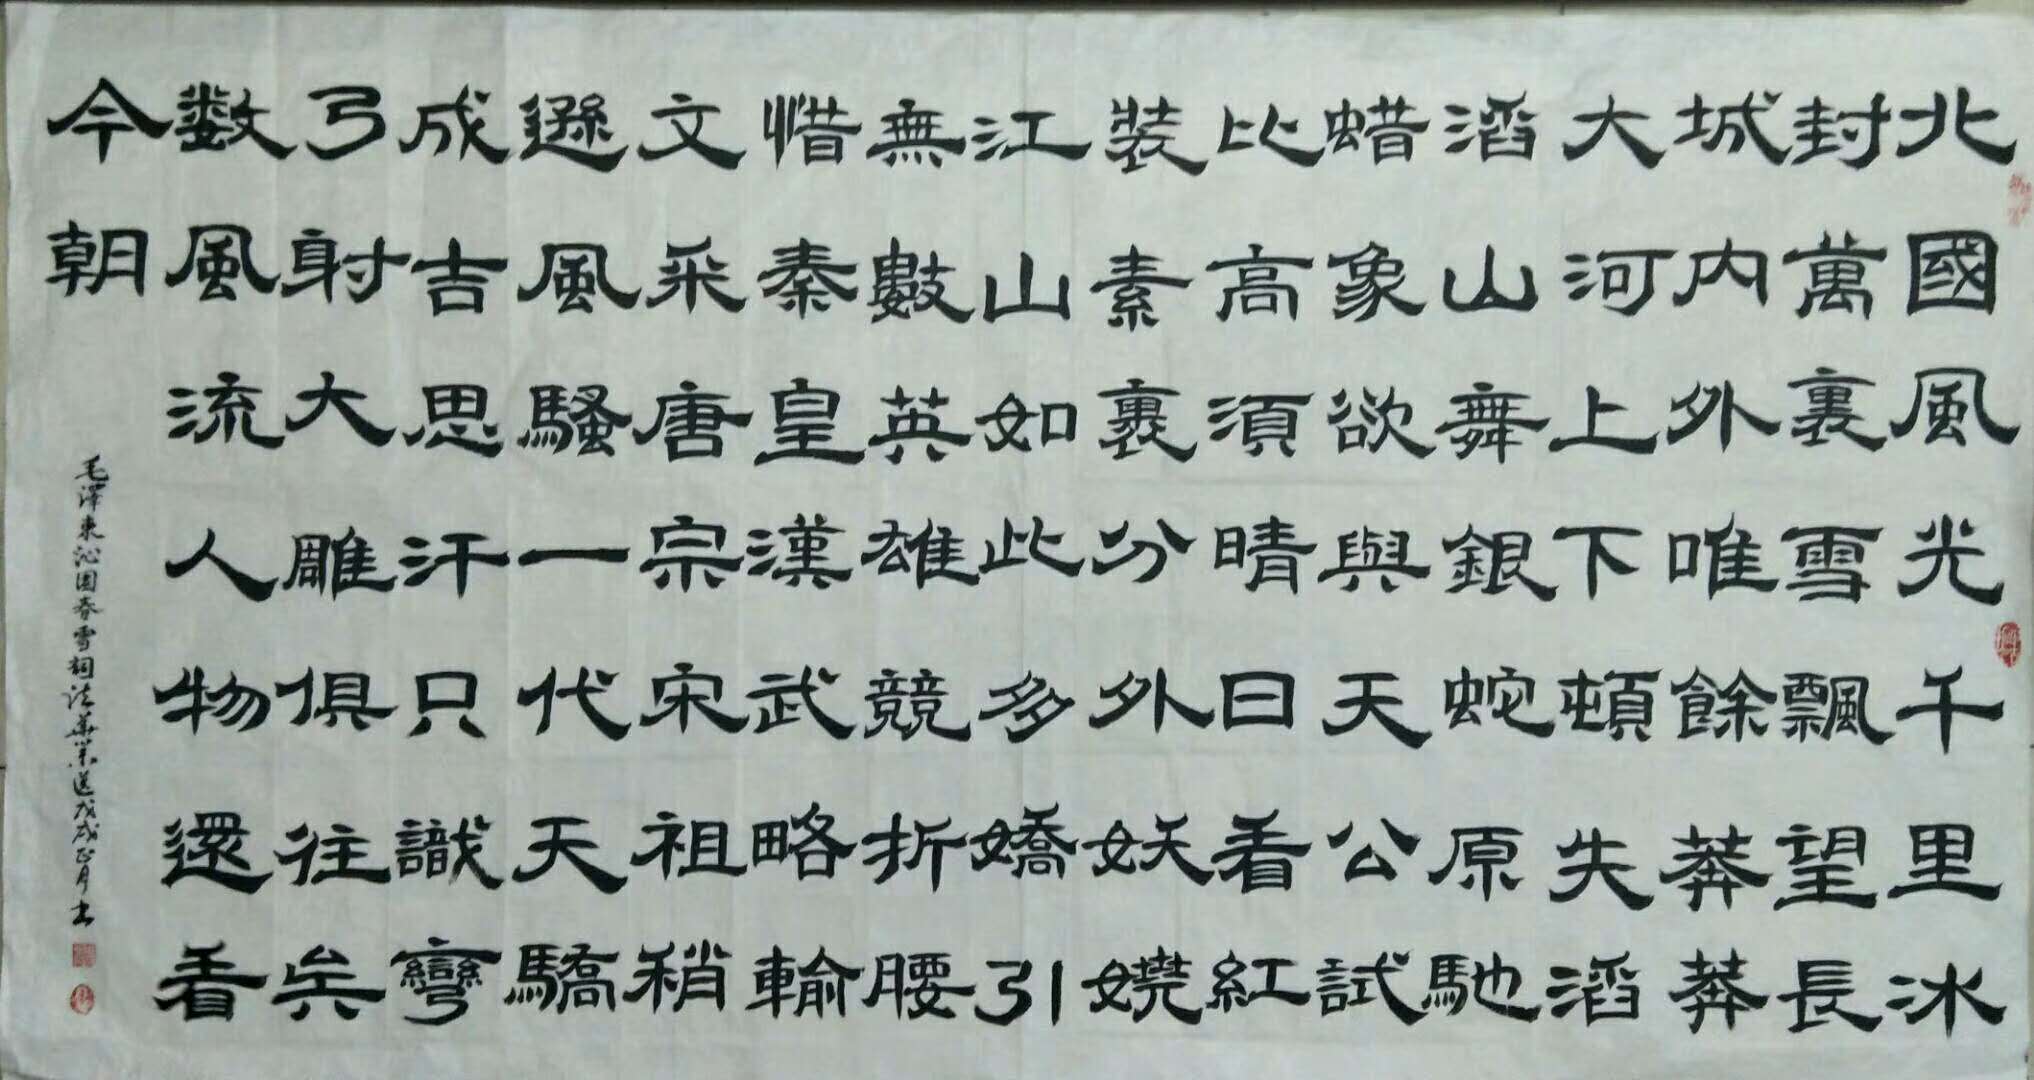 北國風光千里冰
封萬裏雪飄望長
城内外唯餘莽莽
大河上下頓失滔
滔山舞銀蛇原馳
蜡象欲與天公試
比高須晴日看紅
裝素裹分外妖娆
江山如此多嬌引
無數英雄競折腰
惜秦皇漢武略輸
文采唐宗宋祖稍
遜風騷一代天驕
成吉思汗只識彎
弓射大雕俱往矣
数風流人物還看
今朝
毛澤東沁園春雪詞戊戌正月書